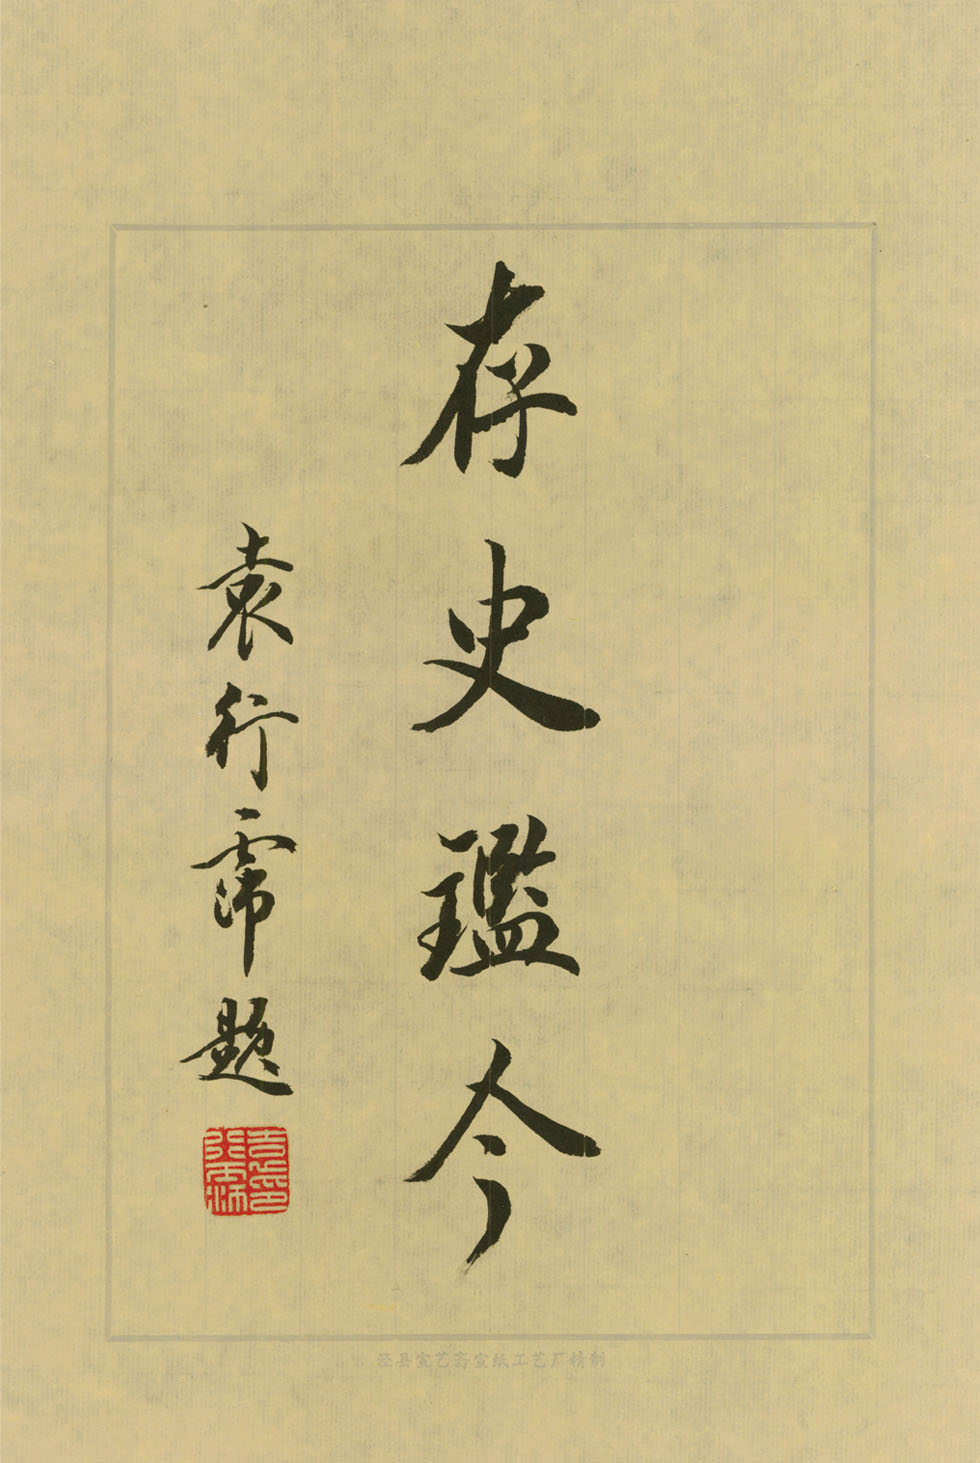 存史鑑今
袁行霈題
袁行霈印
泾县宣艺斋宣纸工艺厂精制